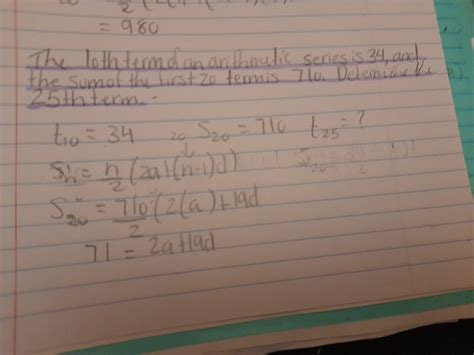 = 980
The 10th term of an arithmetic series is 34, and
the sum of the first 20 terms is 710. Determine the
25th term.
t10 = 34 20 S20 = 710 t25 = ?
Sn = n/2 (2a + (n-1)d)
S20 = 710/2 (2(a) + 19d
71 = 2a + 19d